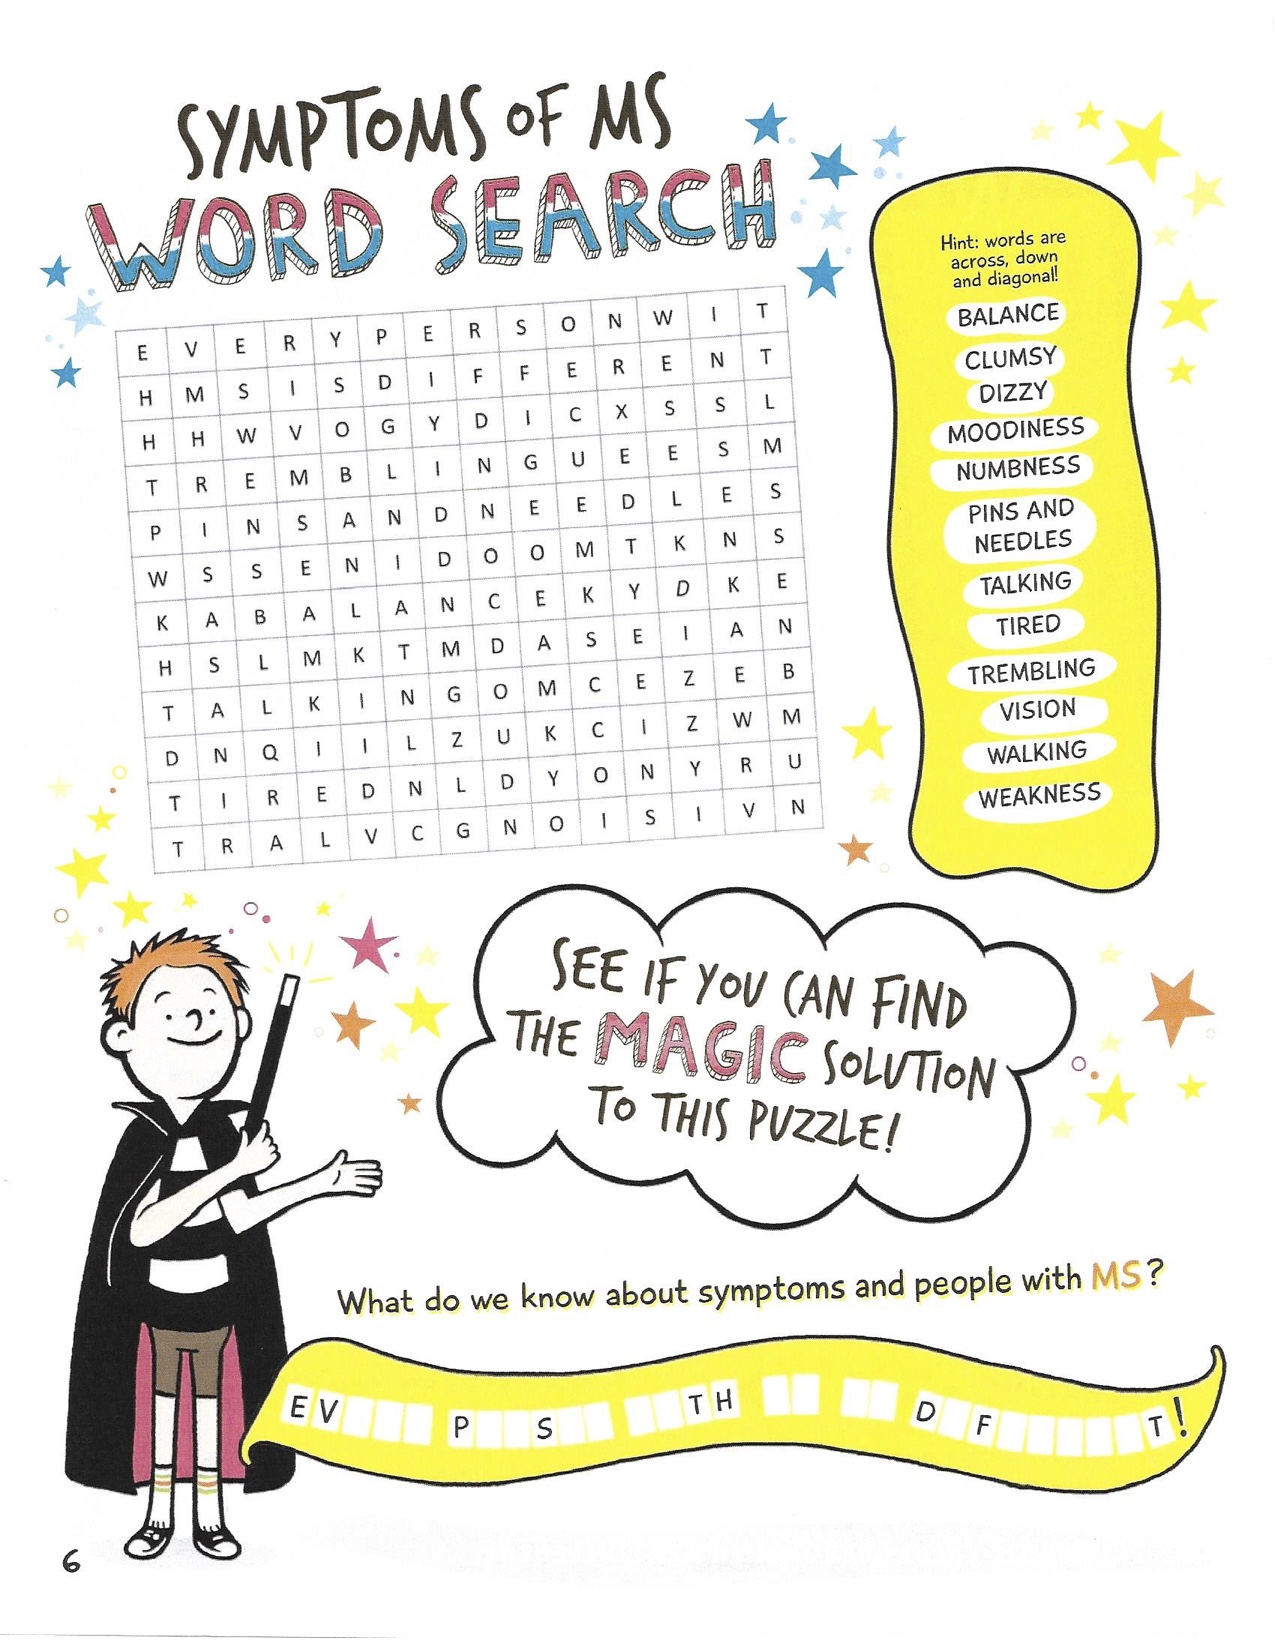 SYMPTOMS OF MS
WORD SEARCH
E V E R Y P E R S O N W I T
H M S I S D I F F E R E N T
H H W V O G Y D I C X S S L
T R E M B L I N G U E E S M
P I N S A N D N E E D L E S
W S S E N I D O O M T K N S
K A B A L A N C E K Y D K E
H S L M K T M D A S E I A N
T A L K I N G O M C E Z E B
D N Q I I L Z U K C I Z W M
T I R E D N L D Y O N Y R U
T R A L V C G N O I S I V N
Hint: words are
across, down
and diagonal!
BALANCE
CLUMSY
DIZZY
MOODINESS
NUMBNESS
PINS AND
NEEDLES
TALKING
TIRED
TREMBLING
VISION
WALKING
WEAKNESS
SEE IF YOU CAN FIND
THE MAGIC SOLUTION
TO THIS PUZZLE!
What do we know about symptoms and people with MS?
EV P S TH D F T!
6